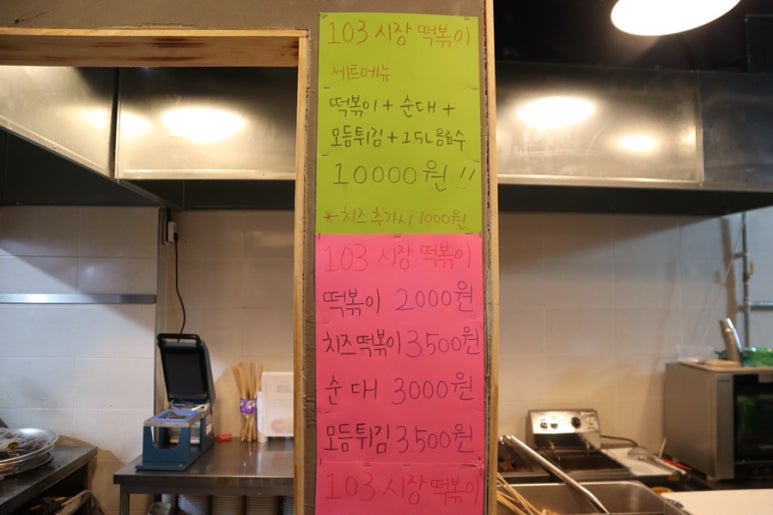 103 시장 떡볶이
세트메뉴
떡볶이 + 순대 +
모듬튀김 + 1.5L음료수
10000원!!
*치즈 추가시 1000원
103 시장 떡볶이
떡볶이 2000원
치즈떡볶이 3,500원
순대 3000원
모듬튀김 3,500원
103 시장 떡볶이